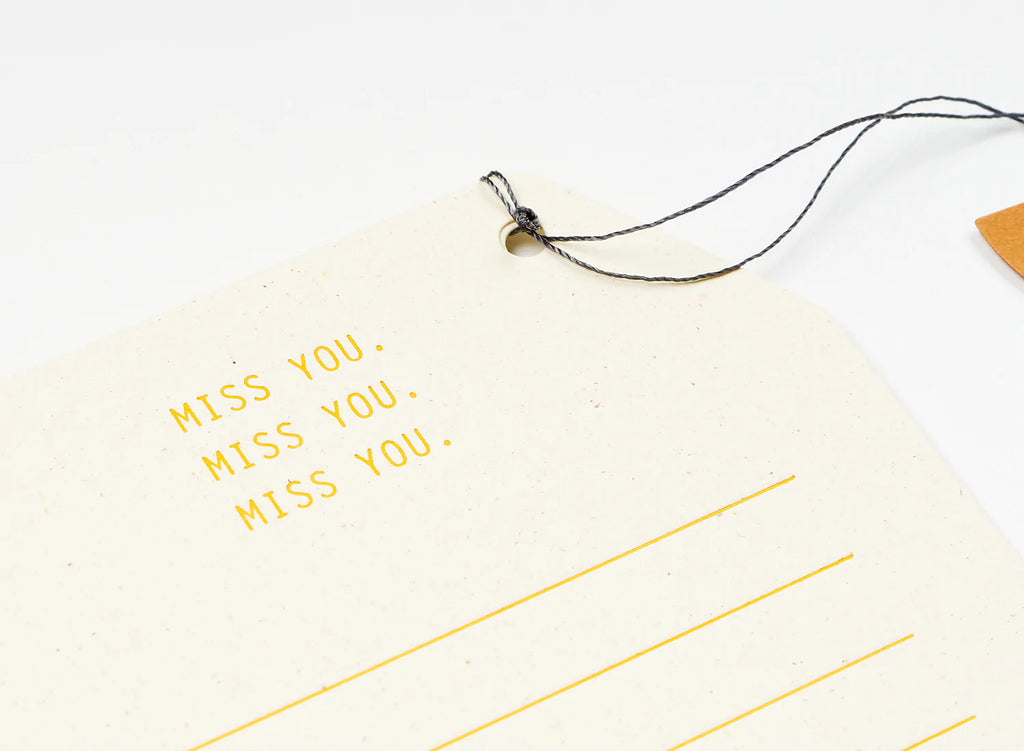 MISS YOU.
MISS YOU.
MISS YOU.